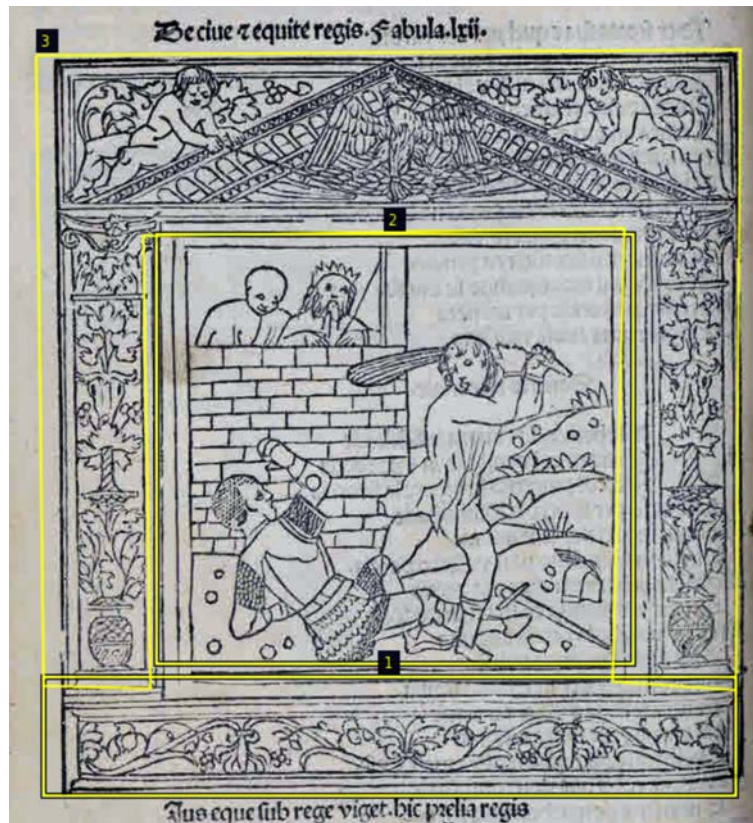 3
De ciue ⁊ equite regis. Fabula. lxii.
2
1
Jus eque sub rege viget. hic prelia regis